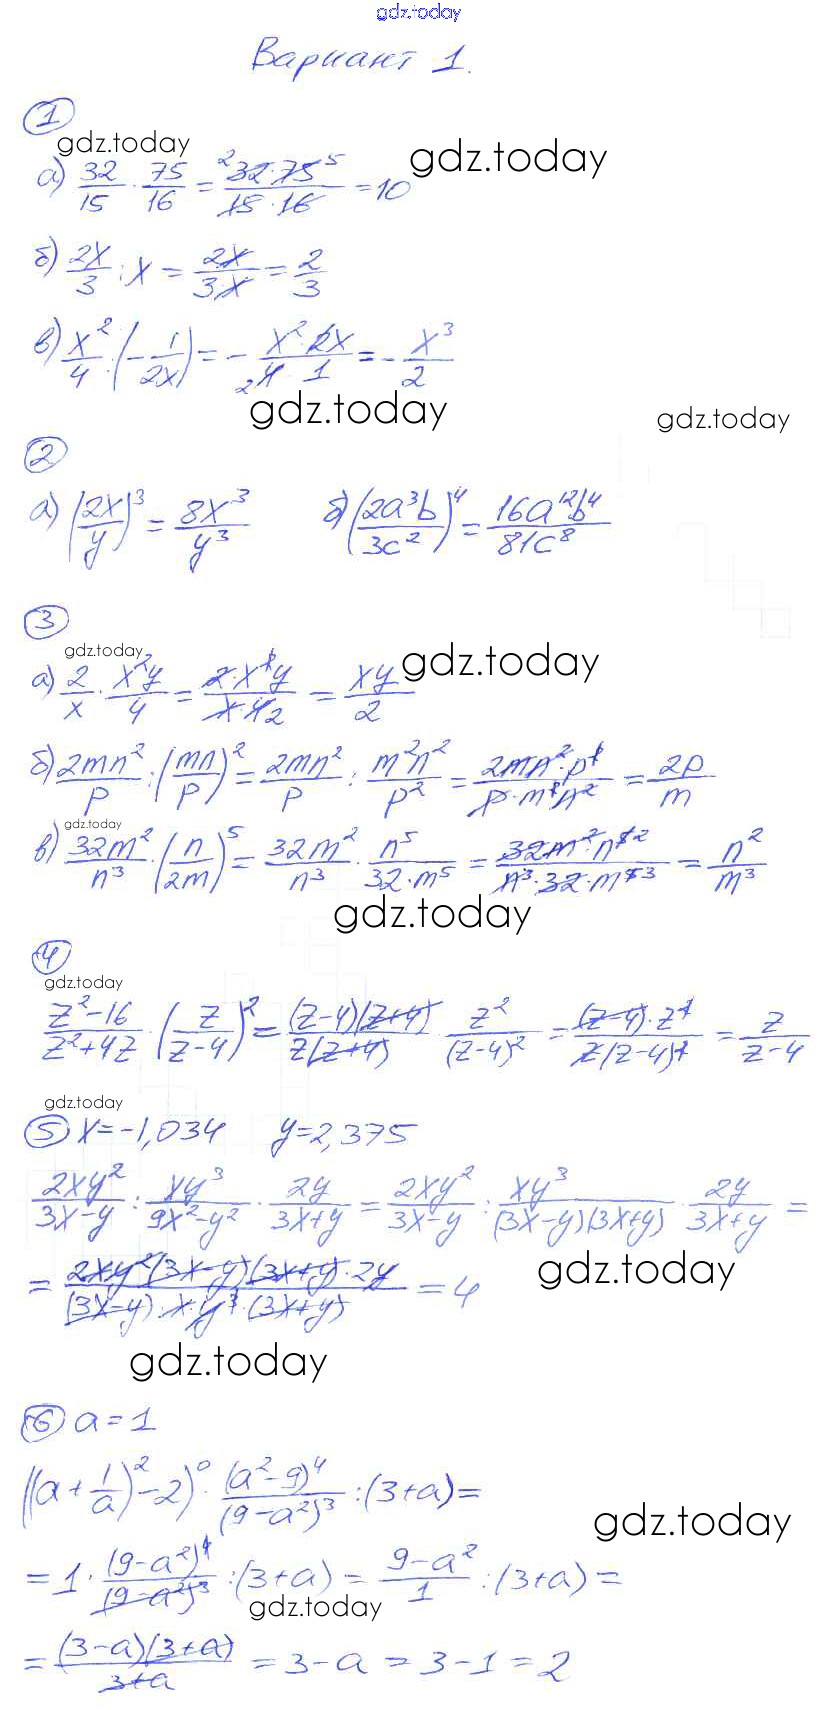 gdz.today
Вариант 1.
1
gdz.today
gdz.today
а) 32/15 · 75/16 = ²32·75⁵/15·16 = 10
б) 2x/3 : x = 2x/3·x = 2/3
в) x²/4 : (-1/2x) = - x²·2x/₂4·1 = - x³/2
gdz.today
gdz.today
2
а) (2x/y)³ = 8x³/y³ б) (2a³b/3c²)⁴ = 16a¹²b⁴/81c⁸
3
gdz.today
gdz.today
а) 2/x · x²y/4 = 2·x²y/x·4₂ = xy/2
б) 2mn²/p : (mn/p)² = 2mn²/p : m²n²/p² = 2mn²·p²/p·m²n² = 2p/m
gdz.today
в) 32m²/n³ · (n/2m)⁵ = 32m²/n³ · n⁵/32·m⁵ = 32m²·n⁵²/n³·32·m⁵³ = n²/m³
gdz.today
4
gdz.today
z²-16/z²+4z · (z/z-4)² = (z-4)(z+4)/z(z+4) · z²/(z-4)² = (z-4)·z²/z(z-4)² = z/z-4
gdz.today
5 x=-1,034 y=2,375
2xy²/3x-y : xy³/9x²-y² · 2y/3x+y = 2xy²/3x-y : xy³/(3x-y)(3x+y) · 2y/3x+y =
= 2xy²(3x-y)(3x+y)·2y/(3x-y)·x·y³·(3x+y) = 4
gdz.today
gdz.today
6 a=1
((a+1/a)²-2)⁰ · (a²-9)⁴/(9-a²)³ : (3+a) =
gdz.today
= 1 · (9-a²)⁴/(9-a²)³ : (3+a) = 9-a²/1 : (3+a) =
gdz.today
= (3-a)(3+a)/3+a = 3-a = 3-1 = 2